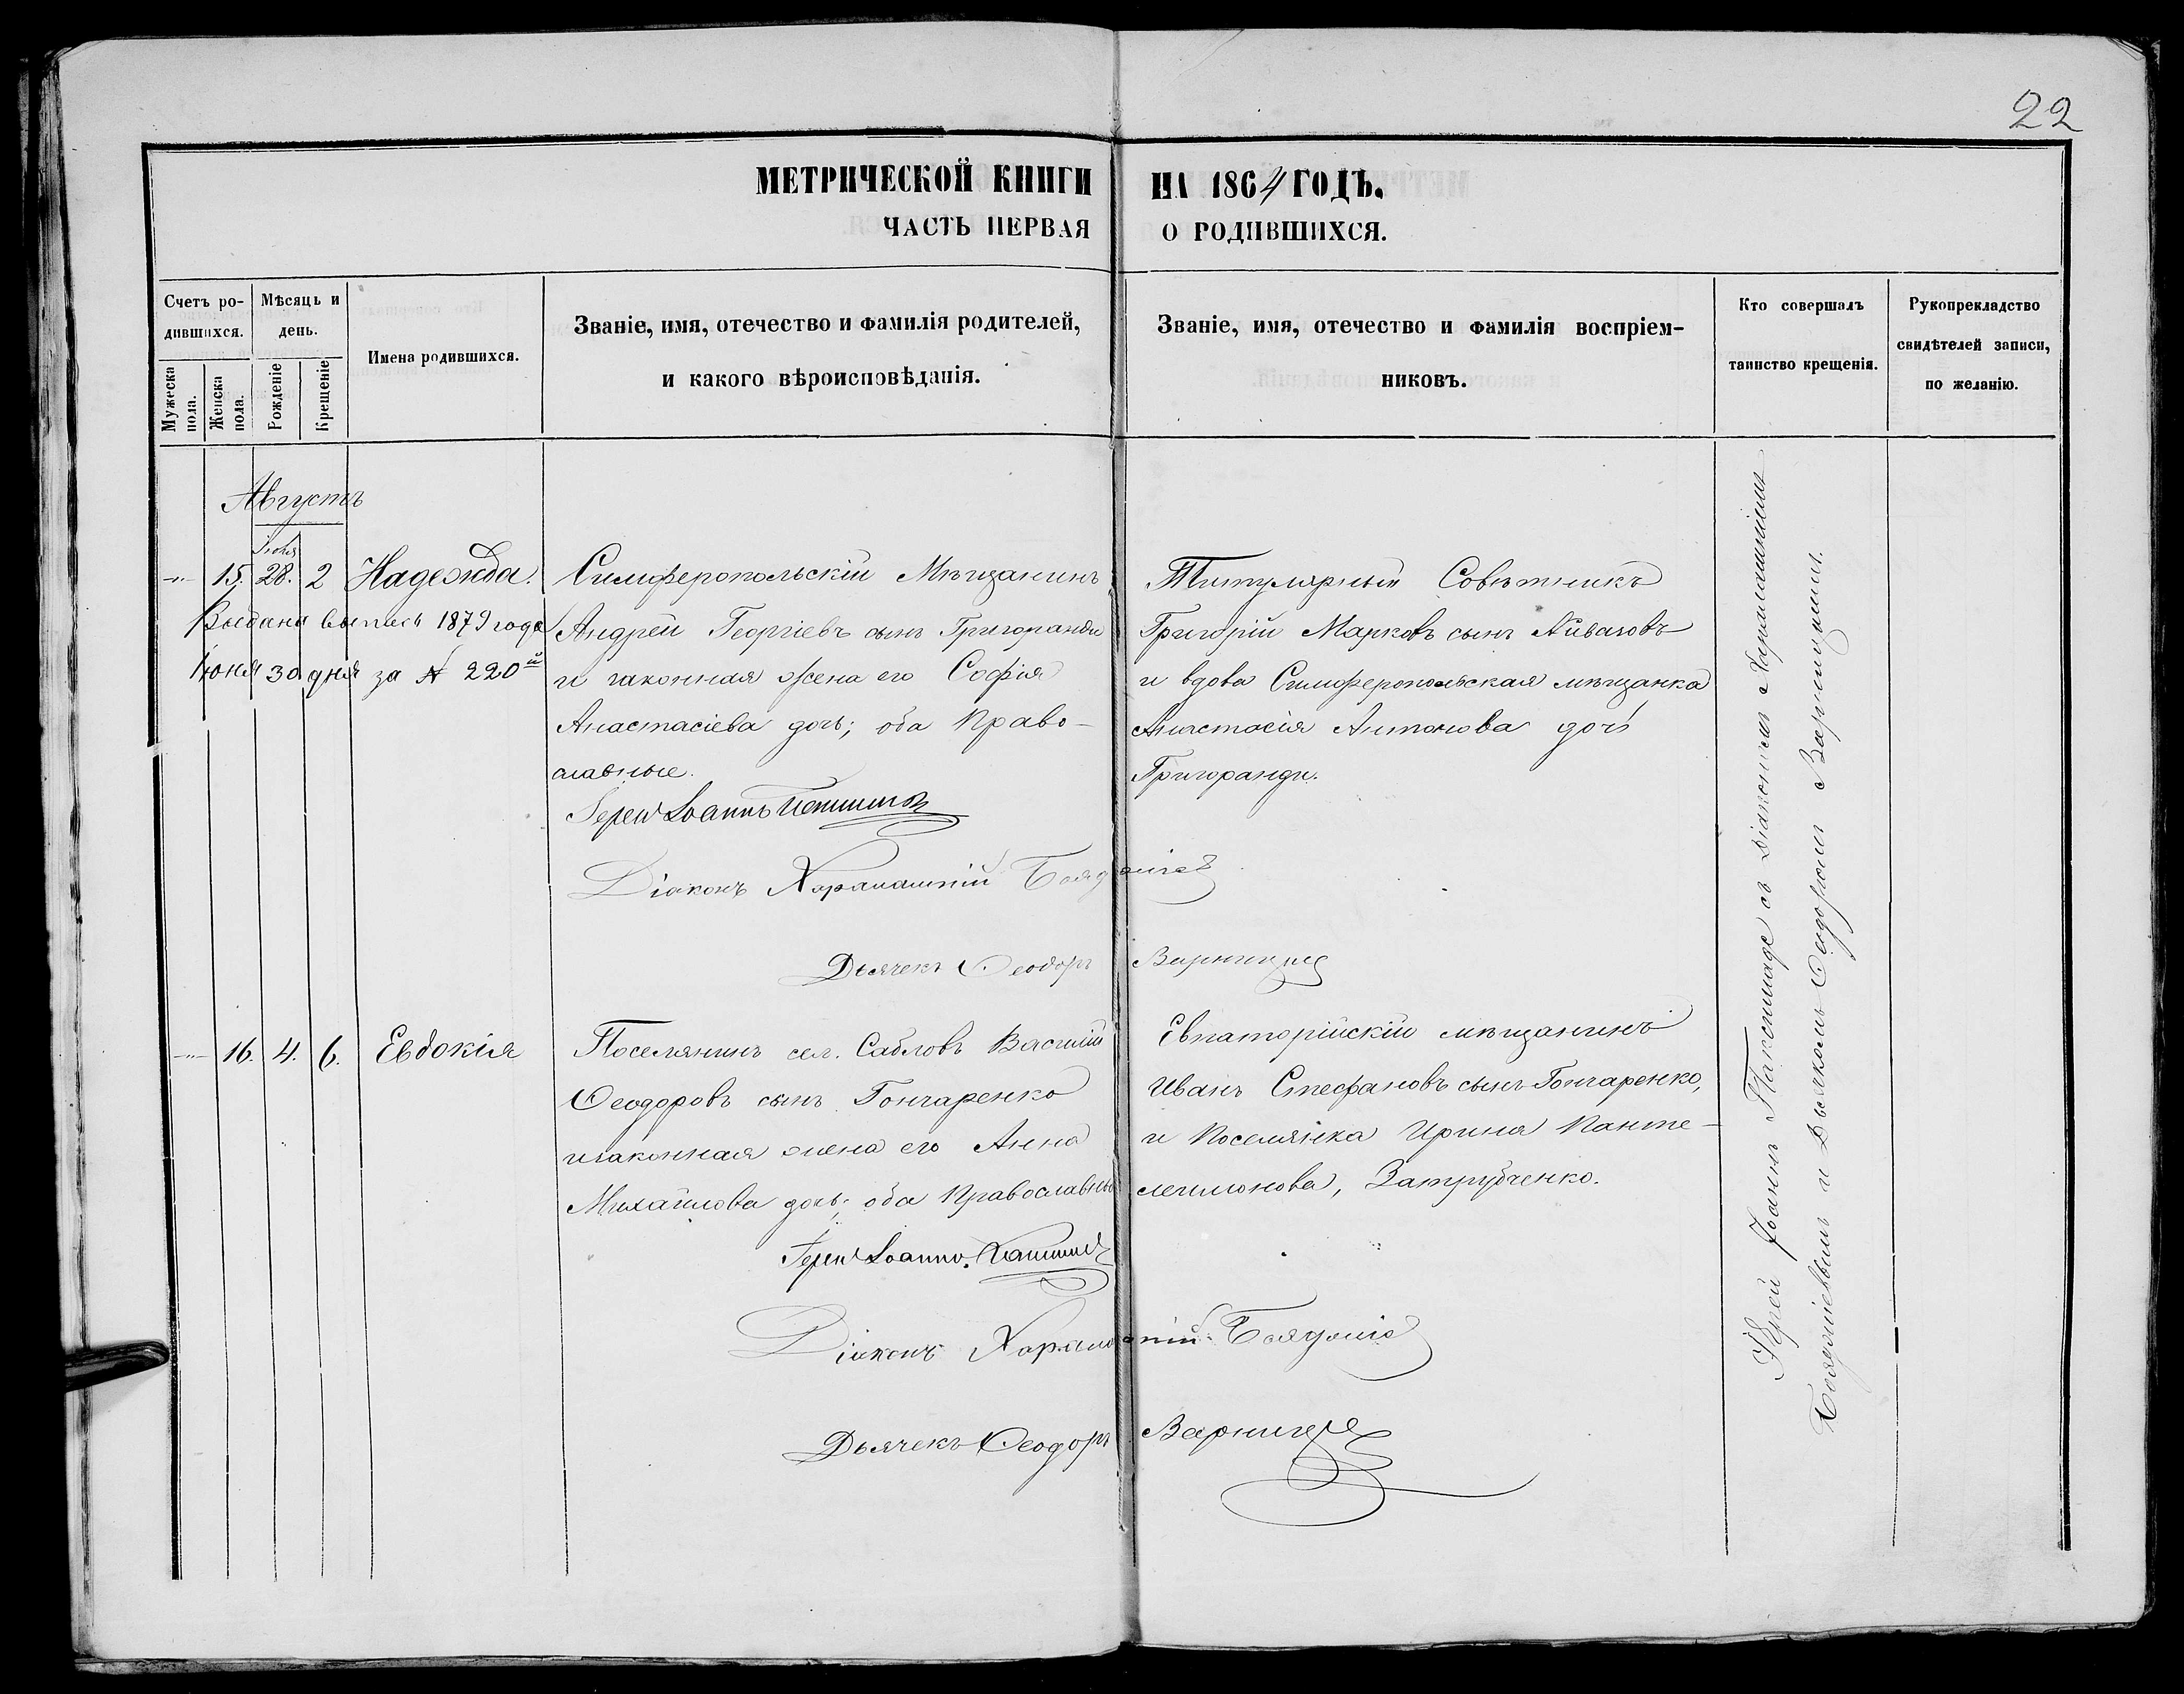 22
МЕТРИЧЕСКОЙ КНИГИ НА 1864 ГОДЪ.
ЧАСТЬ ПЕРВАЯ О РОДИВШИХСЯ.
Счетъ ро-
дившихся.
Мужеска
пола.
Женска
пола.
Мѣсяцъ и
день.
Рожденіе
Крещеніе
Имена родившихся.
Званіе, имя, отечество и фамилія родителей,
и какого вѣроисповѣданія.
Званіе, имя, отечество и фамилія воспріем-
никовъ.
Кто совершалъ
таинство крещенія.
Рукоприкладство
свидѣтелей записи,
по желанію.
Августъ
Іюля
15. 28. 2 Надежда.
Выдана выпись 1879 года
Іюня 30 дня за № 220й
Симферопольскій Мѣщанинъ
Андрей Георгіевъ сынъ Григоранди
и законная жена его Софія
Анастасіева дочь; оба Право-
славные.
Титулярный Совѣтникъ
Григорій Марковъ сынъ Айвазовъ
и вдова Симферопольская мѣщанка
Анастасія Антонова дочь
Григоранди.
Іерей Іоаннъ
Діаконъ Харалампій
Дьячекъ Ѳеодоръ Варницкій
16. 4. 6. Евдокія
Поселянинъ сел. Сабловъ Василій
Ѳеодоровъ сынъ Гончаренко
и законная жена его Анна
Михайлова дочь; оба Православные
Евпаторійскій мѣщанинъ
Иванъ Стефановъ сынъ Гончаренко,
и Поселянка Ирина Панте-
леимонова, Затрубченко.
Іерей Іоаннъ
Діаконъ Харалампій
Дьячекъ Ѳеодоръ Варницкій
Іерей Іоаннъ съ Діакономъ Харалампіемъ
и Дьячкомъ Ѳеодоромъ Варницкимъ.